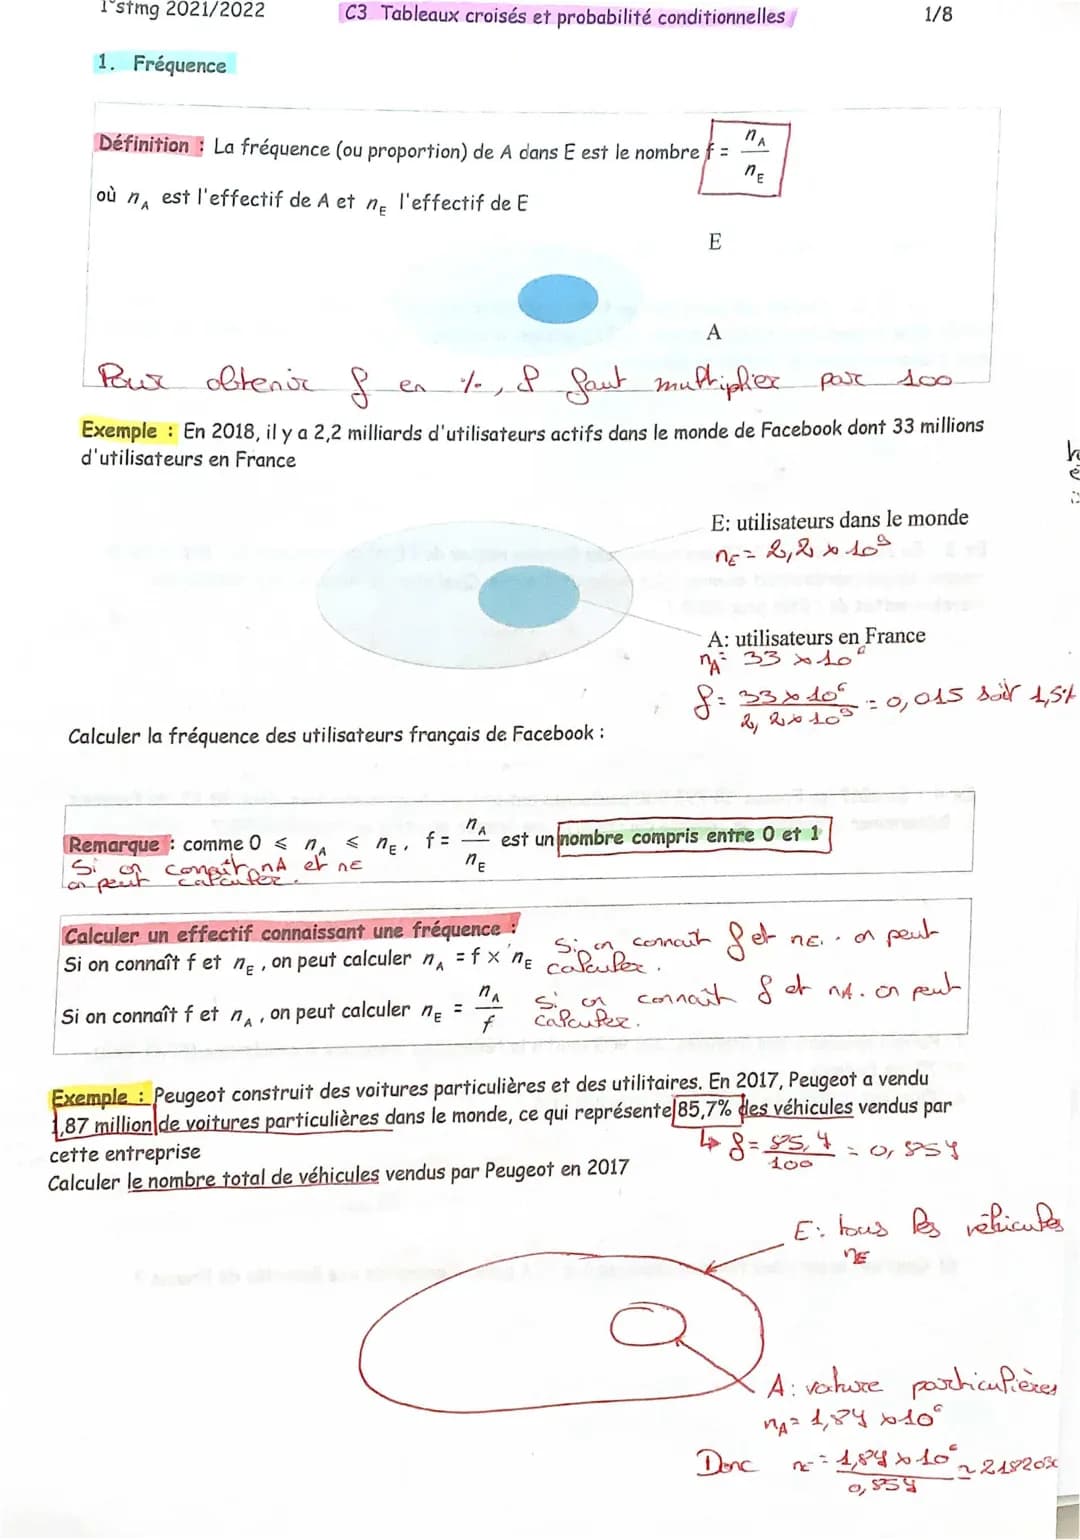 1°stmg 2021/2022
C3 Tableaux croisés et probabilité conditionnelles
1/8
1. Fréquence
Définition : La fréquence (ou proportion) de A dans E est le nombre f = n_A / n_E
où n_A est l'effectif de A et n_E l'effectif de E
E
A
Pour obtenir f en %, il faut multiplier par 100
Exemple : En 2018, il y a 2,2 milliards d'utilisateurs actifs dans le monde de Facebook dont 33 millions
d'utilisateurs en France
E: utilisateurs dans le monde
n_E = 2,2 x 10^9
A: utilisateurs en France
n_A = 33 x 10^6
f = 33 x 10^6 / 2,2 x 10^9 = 0,015 soit 1,5%
Calculer la fréquence des utilisateurs français de Facebook :
Remarque : comme 0 ⩽ n_A ⩽ n_E, f = n_A / n_E est un nombre compris entre 0 et 1
Si on connaît nA et nE
on peut calculer.
Calculer un effectif connaissant une fréquence :
Si on connaît f et n_E, on peut calculer n_A = f x n_E
Si on connait f et nE. on peut
calculer.
Si on connaît f et n_A, on peut calculer n_E = n_A / f
Si on connaît f et nA. on peut
calculer.
Exemple : Peugeot construit des voitures particulières et des utilitaires. En 2017, Peugeot a vendu
1,87 million de voitures particulières dans le monde, ce qui représente 85,7% des véhicules vendus par
cette entreprise
↳ f = 85,7 / 100 = 0,857
Calculer le nombre total de véhicules vendus par Peugeot en 2017
E: tous les véhicules
n_E
A: voiture particulières
n_A = 1,87 x 10^6
Donc n_E = 1,87 x 10^6 / 0,857 ≈